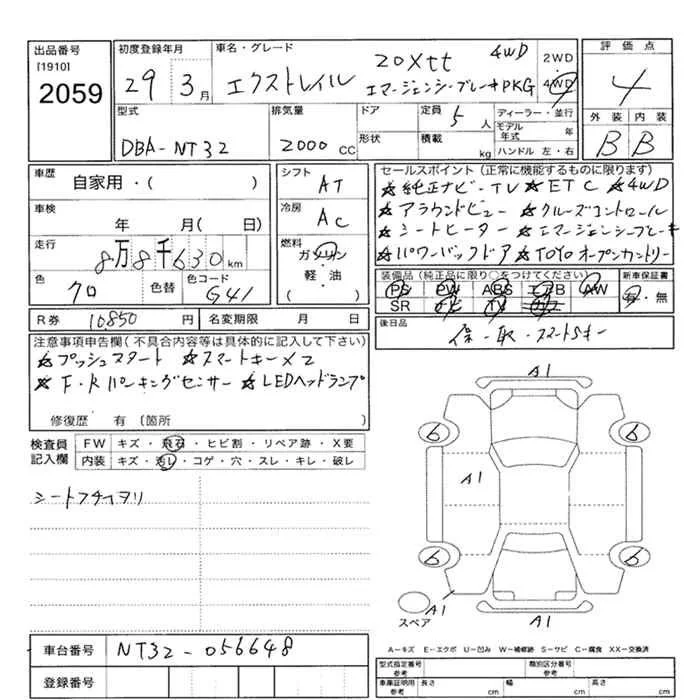 出品番号 初度登録年月 車名・グレード 20Xtt 4WD 2WD 評価点
[1910] 29 3月 エクストレイル エマージェンシーブレーキPKG 4WD 4
2059 外装 内装
型式 排気量 ドア 定員 5人 ディーラー・並行 B B
DBA-NT32 2000 CC 形状 積載 kg モデル年式 年
ハンドル 左・右
車歴 自家用・( ) シフト AT セールスポイント(正常に機能するものに限ります)
★純正ナビ-TV ★ETC ★4WD
車検 年 月( 日) 冷房 AC ★アラウンドビュー ★クルーズコントロール
★シートヒーター ★エマージェンシーブレーキ
走行 8万8千630 km 燃料 ガソリン ★パワーバックドア ★TOYOオープンカントリー
軽・油
( )
色 クロ 色替 色コード G41 装備品(純正品に限り○をつけてください) 新車保証書
PS PW ABS エアB AW 有・無
SR ナビ TV カワ
R券 10850 円 名変期限 月 日 後日品
保-取-スマートSキー
注意事項申告欄(不具合内容等は具体的に記入して下さい)
★プッシュスタート ★スマートキー×2
★F・Rパーキングセンサー ★LEDヘッドランプ
修復歴 有 (箇所 )
検査員記入欄 FW キズ・飛石・ヒビ割・リペア跡・X要
内装 キズ・汚レ・コゲ・穴・スレ・キレ・破レ
シート
A1
6 6
A1
6 6
スペア A1 A1
A-キズ E-エクボ U-凹み W-補修跡 S-サビ C-腐食 XX-交換済
車台番号 NT32-056648
登録番号
型式指定番号 参考 類別区分番号 参考
車庫証明用 参考 長さ cm 幅 cm 高さ cm